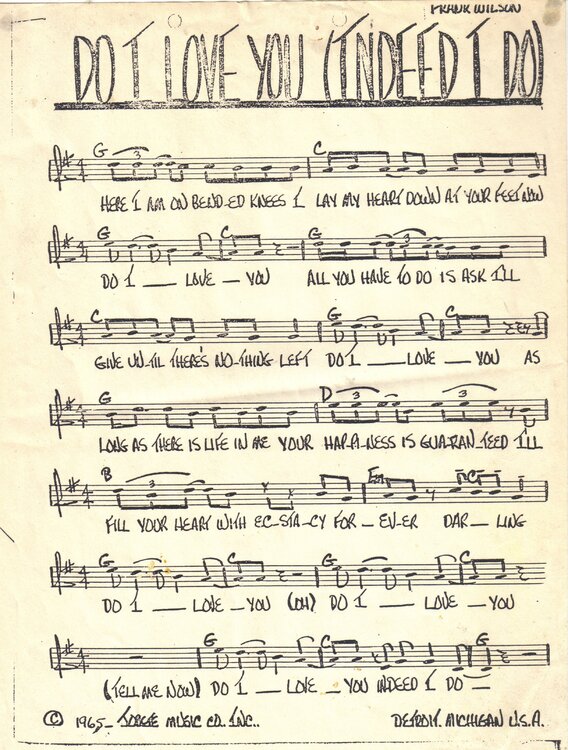 FRANK WILSON
DO I LOVE YOU (INDEED I DO)
G 3 C
HERE I AM ON BEND-ED KNEES I LAY MY HEART DOWN AT YOUR FEET NOW
G C G 3
DO I — LOVE — YOU ALL YOU HAVE TO DO IS ASK I'LL
C G C
GIVE UN-TIL THERE'S NO-THING LEFT DO I — LOVE — YOU AS
G D 3 3
LONG AS THERE IS LIFE IN ME YOUR HAP-PI-NESS IS GUA-RAN-TEED I'LL
B 3 Em C
FILL YOUR HEART WITH EC-STA-CY FOR-EV-ER DAR-LING
G C G C
DO I — LOVE — YOU (OH) DO I — LOVE — YOU
G C G
(TELL ME NOW) DO I — LOVE — YOU INDEED I DO —
© 1965 - JOBETE MUSIC CO. INC.. DETROIT. MICHIGAN U.S.A.